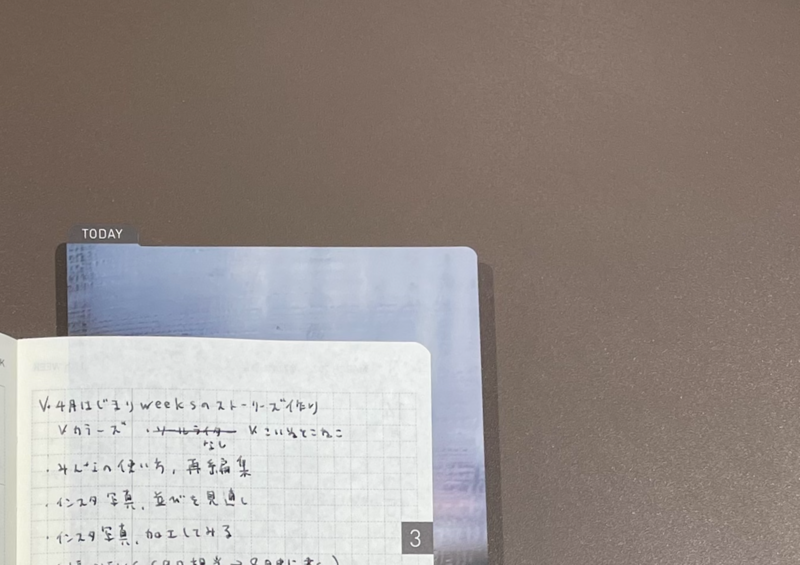 TODAY
K
✓・4月はじまりweeksのストーリーズ作り
✓カラーズ ・ソールライター ✓こいぬとこねこ
なし
・みんなの使い方、再編集
・インスタ写真、並びを見直し
・インスタ写真、加工してみる
3